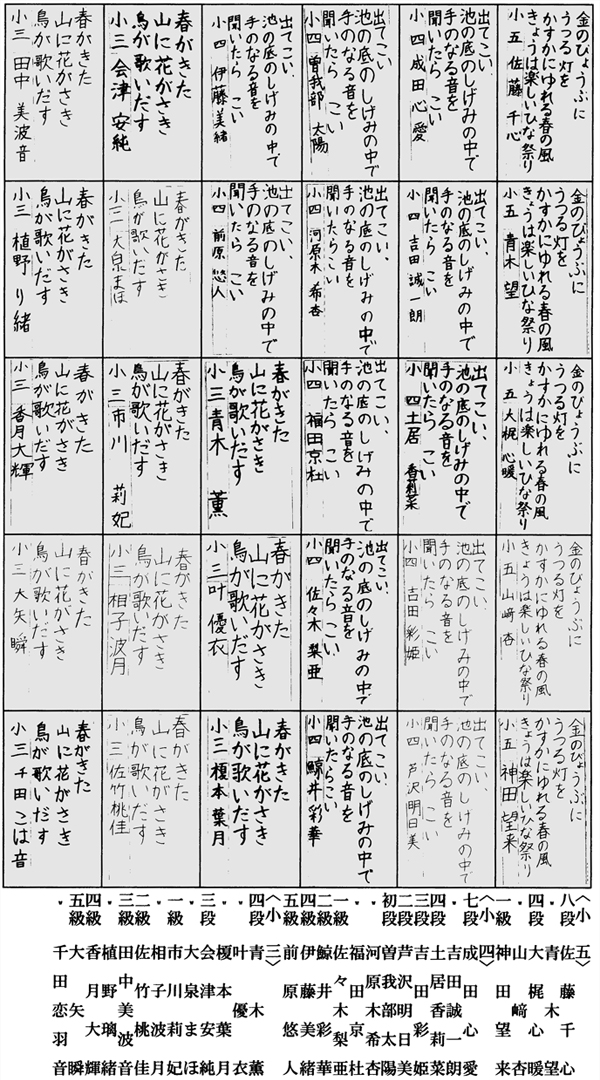 金のびょうぶに
うつる灯を
かすかにゆれる春の風
きょうは楽しいひな祭り
小五 佐藤千心
金のびょうぶに
うつる灯を
かすかにゆれる春の風
きょうは楽しいひな祭り
小五 青木望
金のびょうぶに
うつる灯を
かすかにゆれる春の風
きょうは楽しいひな祭り
小五 大梶心暖
金のびょうぶに
うつる灯を
かすかにゆれる春の風
きょうは楽しいひな祭り
小五 山﨑杏
金のびょうぶに
うつる灯を
かすかにゆれる春の風
きょうは楽しいひな祭り
小五 神田望来
出てこい、
池の底のしげみの中で
手のなる音を
聞いたら こい
小四 成田心愛
出てこい、
池の底のしげみの中で
手のなる音を
聞いたら こい
小四 吉田誠一朗
出てこい、
池の底のしげみの中で
手のなる音を
聞いたら こい
小四 土居香莉菜
出てこい、
池の底のしげみの中で
手のなる音を
聞いたら こい
小四 吉田彩姫
出てこい、
池の底のしげみの中で
手のなる音を
聞いたら こい
小四 芦沢明日美
出てこい、
池の底のしげみの中で
手のなる音を
聞いたら こい
小四 曽我部太陽
出てこい、
池の底のしげみの中で
手のなる音を
聞いたら こい
小四 河原木希杏
出てこい、
池の底のしげみの中で
手のなる音を
聞いたら こい
小四 福田京杜
出てこい、
池の底のしげみの中で
手のなる音を
聞いたら こい
小四 佐々木梨亜
出てこい、
池の底のしげみの中で
手のなる音を
聞いたらこい
小四 鯨井彩華
出てこい、
池の底のしげみの中で
手のなる音を
聞いたら こい
小四 伊藤美緒
出てこい、
池の底のしげみの中で
手のなる音を
聞いたら こい
小四 前原悠人
春がきた
山に花がさき
鳥が歌いだす
小三 青木薫
春がきた
山に花がさき
鳥が歌いだす
小三 叶優衣
春がきた
山に花がさき
鳥が歌いだす
小三 榎本葉月
春がきた
山に花がさき
鳥が歌いだす
小三 会津安純
春がきた
山に花がさき
鳥が歌いだす
小三 大泉まほ
春がきた
山に花がさき
鳥が歌いだす
小三 市川莉妃
春がきた
山に花がさき
鳥が歌いだす
小三 相子波月
春がきた
山に花がさき
鳥が歌いだす
小三 佐竹桃佳
春がきた
山に花がさき
鳥が歌いだす
小三 田中美波音
春がきた
山に花がさき
鳥が歌いだす
小三 植野り緒
春がきた
山に花がさき
鳥が歌いだす
小三 香月大輝
春がきた
山に花がさき
鳥が歌いだす
小三 大矢瞬
春がきた
山に花がさき
鳥が歌いだす
小三 千田こは音
〈小五〉
八段 佐藤千心
・ 青木望
四段 大梶心暖
・ 山﨑杏
一級 神田望来
〈小四〉
七段 成田心愛
・ 吉田誠一朗
四段 土居香莉菜
三段 吉田彩姫
二段 芦沢明日美
初段 曽我部太陽
・ 河原木希杏
・ 福田京杜
一級 佐々木梨亜
二級 鯨井彩華
四級 伊藤美緒
五級 前原悠人
〈小三〉
四段 青木薫
・ 叶優衣
・ 榎本葉月
三段 会津安純
・ 大泉まほ
一級 市川莉妃
・ 相子波月
二級 佐竹桃佳
三級 田中美波音
・ 植野璃緒
四級 香月大輝
・ 大矢瞬
五級 千田恋羽音